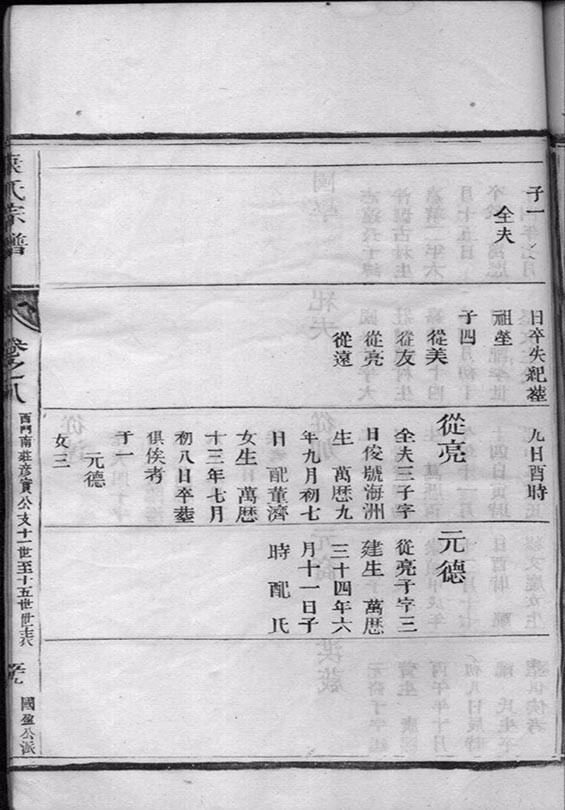 子一
全夫
日卒失紀塟
祖塋
子四
從美
從友
從亮
從遠
九日酉時
從亮
全夫三子字
日俊號海洲
生 萬歷九
年九月初七
日 配董濟
女生 萬歷
十三年七月
初八日卒塟
俱俟考
子一
元德
女三
元德
從亮子字三
建生 萬歷
三十四年六
月十一日子
時 配 氏
袁氏宗譜
卷之八
西門南莊彥實公支十一世至十五世世表
國盈公派